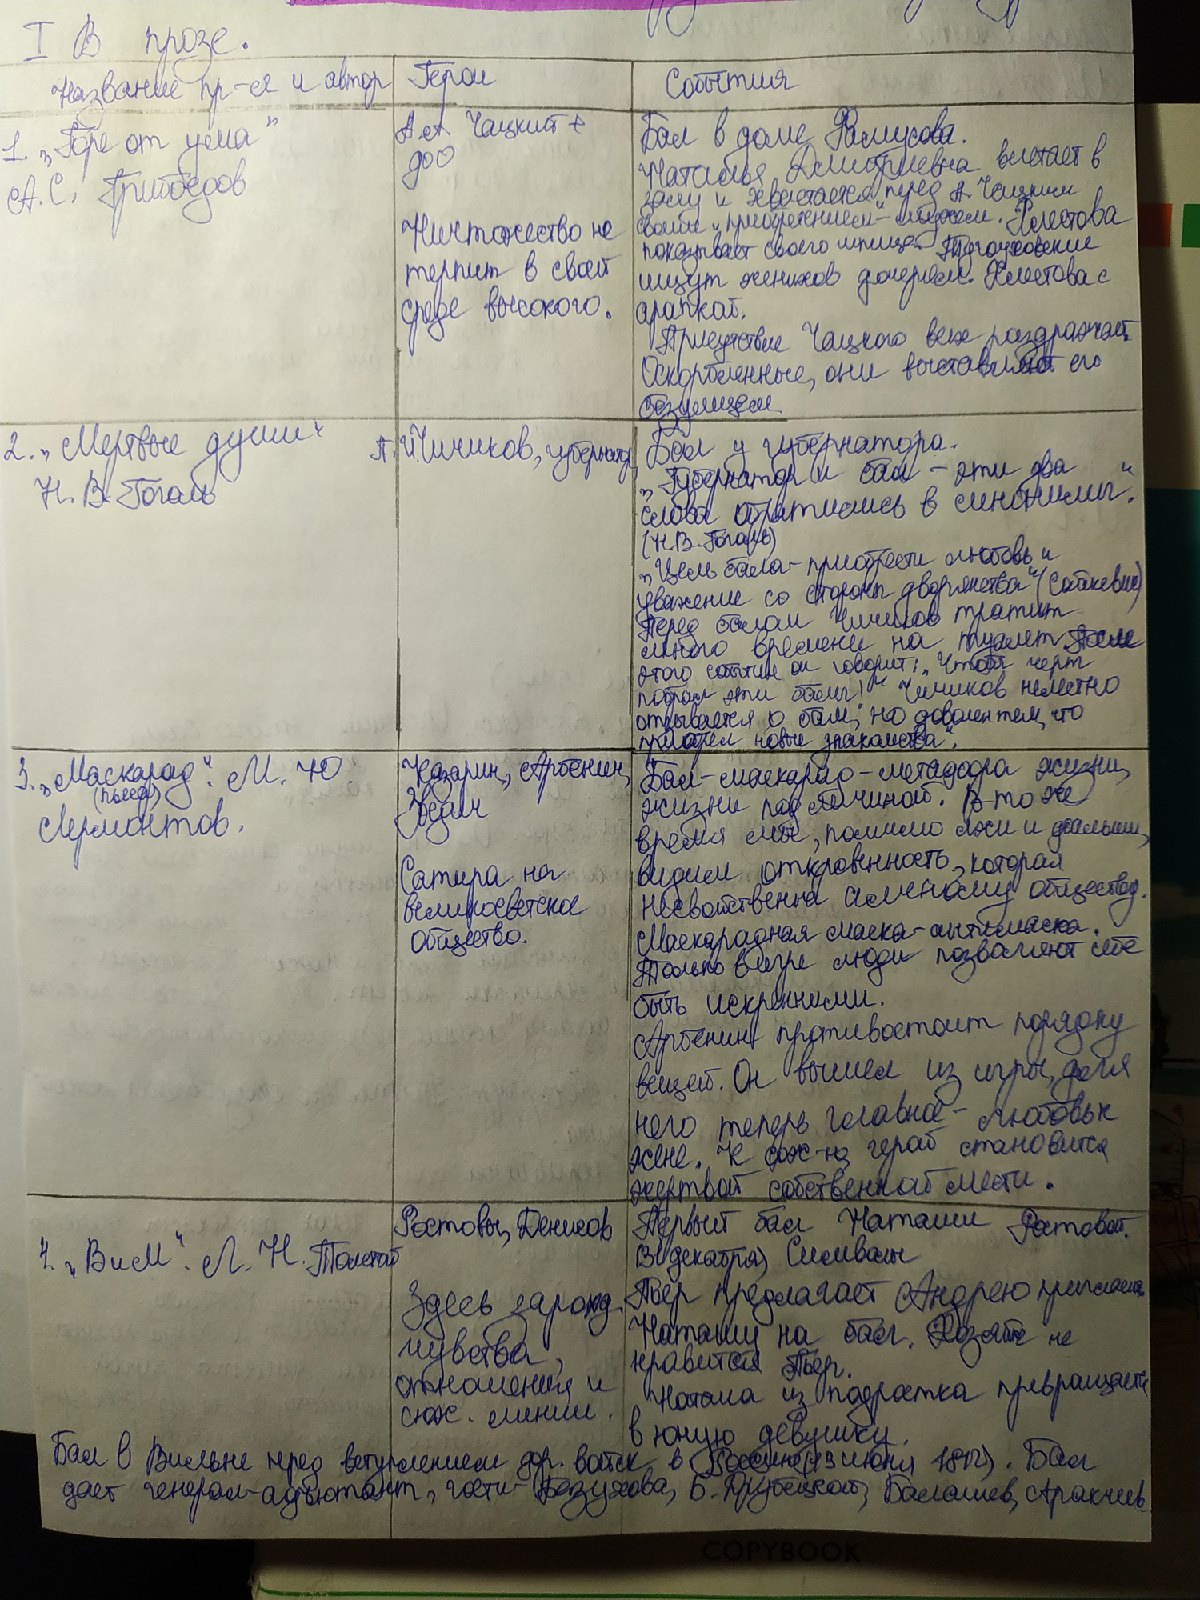 I В прозе.
Название пр-ея и автор
Герои
События
1. „Горе от ума"
А.С. Грибоедов
А.А. Чацкий +
доо
Ничтожество не
терпит в своей
среде высокого.
Бал в доме Фамусова.
Наталья Дмитриевна влетает в
залу и хвастается перед А. Чацким
своим „приобретением"-мужем. Хлестова
показывает своего шпица. Тугоуховские
ищут женихов дочерям. Хлестова с
арапкой.
Присутствие Чацкого всех раздражает.
Оскорбленные, они выставляют его
безумцем
2. „Мертвые души"
Н.В. Гоголь
П.И Чичиков, губернатор
Бал у губернатора.
„Губернатор и бал - эти два
слова обратились в синонимы".
(Н.В. Гоголь)
„Цель бала - приобрести любовь и
уважение со стороны дворянства" (Собакевич)
Перед балом Чичиков тратит
много времени на туалет. После
этого события он говорит: „Чтоб черт
побрал эти балы!" Чичиков нелестно
отзывается о бале, но доволен тем, что
приобрел новые знакомства".
3. „Маскарад". М. Ю
(пьеса)
Лермонтов.
Казарин, Арбенин,
Звездич
Сатира на
великосветское
общество.
Бал-маскарад - метафора жизни,
жизни под личиной. В то же
время мы, помимо лжи и фальши,
видим откровенность, которая
несвойственна обществу.
Маскарадная маска - антимаска.
Только в игре люди позволяют себе
быть искренними.
Арбенин противостоит порядку
вещей. Он вышел из игры, для
него теперь главное - любовь к
жене. К сож-ю, герой становится
жертвой собственной мести.
4. „ВиМ". Л. Н. Толстой
Ростовы, Денисов
Здесь зарожд.
чувства,
отношения и
сюж. линии.
Первый бал Наташи Ростовой.
Пьер предлагает Андрею пригласить
Наташу на бал. не
нравится Пьер.
Наташа из подростка превращается
в юную девушку.
Бал в Вильне перед вступлением фр. войск в Россию (13 июня 1812). Бал
дает генерал-адъютант, гости - Безухова, Б. Друбецкой, Балашев, Аракчеев
COPYBOOK